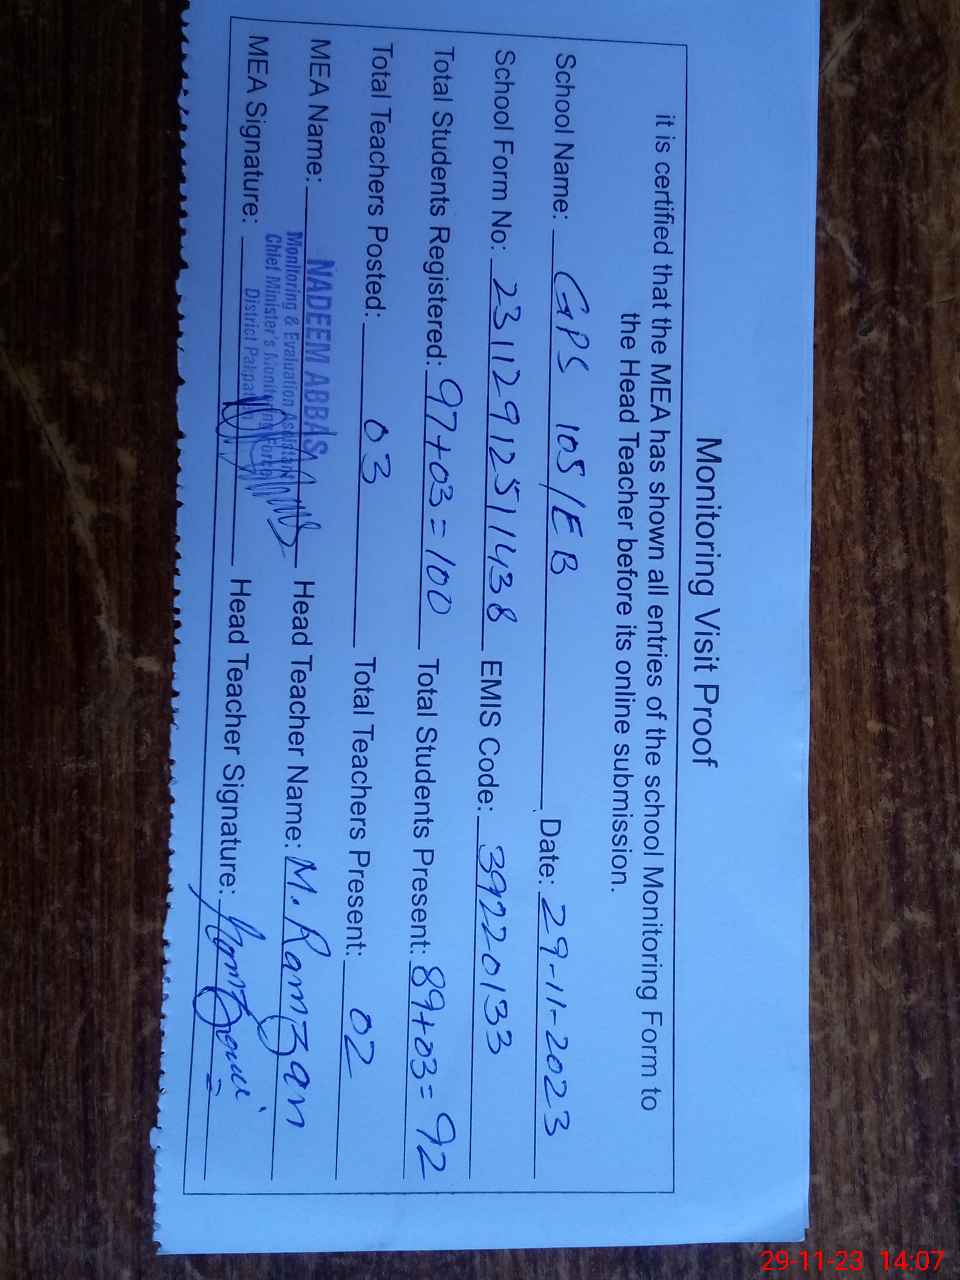 Monitoring Visit Proof
it is certified that the MEA has shown all entries of the school Monitoring Form to
the Head Teacher before its online submission.
School Name: GPS 105/EB Date: 29-11-2023
School Form No: 23112912511438 EMIS Code: 39220133
Total Students Registered: 97+03=100 Total Students Present: 89+03=92
Total Teachers Posted: 03 Total Teachers Present: 02
MEA Name: NADEEM ABBAS Head Teacher Name: M. Ramzan
Monitoring & Evaluation Assistant
Chief Minister's Monitoring Force
District Pakpattan
MEA Signature: Head Teacher Signature:
29-11-23 14:07